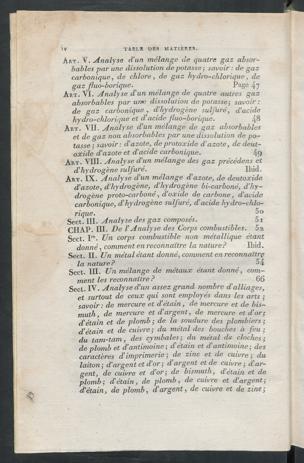 iv TABLE DES MATIÈRES.
Art. V. Analyse d'un mélange de quatre gaz absor-
bables par une dissolution de potasse; savoir: de gaz
carbonique, de chlore, de gaz hydro-chlorique, de
gaz fluo-borique. Page 47
Art. VI. Analyse d'un mélange de quatre autres gaz
absorbables par une dissolution de potasse; savoir:
de gaz carbonique, d'hydrogène sulfuré, d'acide
hydro-chlorique et d'acide fluo-borique. 48
Art. VII. Analyse d'un mélange de gaz absorbables
et de gaz non absorbables par une dissolution de po-
tasse; savoir: d'azote, de protoxide d'azote, de deut-
oxide d'azote et d'acide carbonique. 49
Art. VIII. Analyse d'un mélange des gaz précédens et
d'hydrogène sulfuré. Ibid.
Art. IX. Analyse d'un mélange d'azote, de deutoxide
d'azote, d'hydrogène, d'hydrogène bi-carboné, d'hy-
drogène proto-carboné, d'oxide de carbone, d'acide
carbonique, d'hydrogène sulfuré, d'acide hydro-chlo-
rique. 50
Sect. III. Analyse des gaz composés. 51
CHAP. III. De l'Analyse des Corps combustibles. 52
Sect. Ire. Un corps combustible non métallique étant
donné, comment en reconnaître la nature? Ibid.
Sect. II. Un métal étant donné, comment en reconnaître
la nature? 54
Sect. III. Un mélange de métaux étant donné, com-
ment les reconnaître? 66
Sect. IV. Analyse d'un assez grand nombre d'alliages,
et surtout de ceux qui sont employés dans les arts;
savoir: de mercure et d'étain, de mercure et de bis-
muth, de mercure et d'argent, de mercure et d'or;
d'étain et de plomb; de la soudure des plombiers;
d'étain et de cuivre; du métal des bouches à feu;
du tam-tam, des cymbales; du métal de cloches;
de plomb et d'antimoine; d'étain et d'antimoine; des
caractères d'imprimerie; de zinc et de cuivre; du
laiton; d'argent et d'or; d'argent et de cuivre; d'ar-
gent, de cuivre et d'or; de bismuth, d'étain et de
plomb; d'étain, de plomb, de cuivre et d'argent;
d'étain, de plomb, d'argent, de cuivre et de zinc;